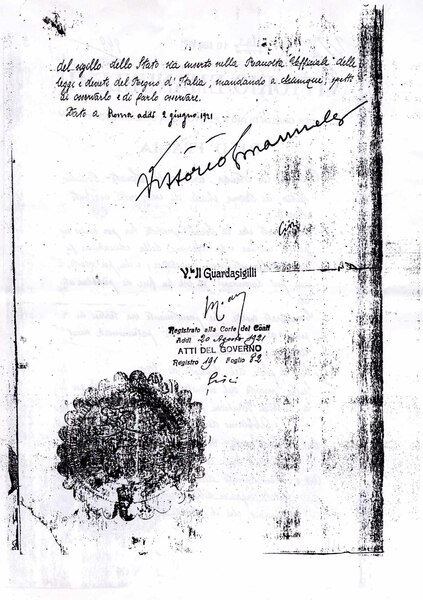 del sigillo dello Stato sia inserto nella Raccolta Ufficiale delle
leggi e decreti del Regno d'Italia, mandando a chiunque spetti
di osservarlo e di farlo osservare.
Dato a Roma addì 2 giugno 1921
Vittorio Emanuele
V.to Il Guardasigilli
Registrato alla Corte dei Conti
Addì 20 Agosto 1921
ATTI DEL GOVERNO
Registro 191 Foglio 82